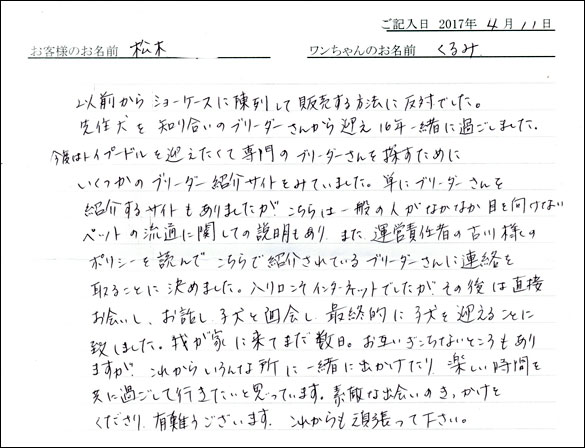 ご記入日 2017年 4月 11日
お客様のお名前 松木 ワンちゃんのお名前 くるみ
以前からショーケースに陳列して販売する方法に反対でした。
先住犬を知り合いのブリーダーさんから迎え16年一緒に過ごしました。
今後はトイプードルを迎えたくて専門のブリーダーさんを探すために
いくつかのブリーダー紹介サイトをみていました。単にブリーダーさんを
紹介するサイトもありましたが、こちらは一般の人がなかなか目を向けない
ペットの流通に関しての説明もあり、また、運営責任者の古川様の
ポリシーを読んで、こちらで紹介されているブリーダーさんに連絡を
取ることに決めました。入り口こそインターネットでしたが、その後は直接
お会いし、お話し、子犬と面会し、最終的に子犬を迎えることに
致しました。我が家に来てまだ数日。お互いぎこちないところもあり
ますが、これからいろんな所に一緒に出かけたり、楽しい時間を
共に過ごして行きたいと思っています。素敵な出会いのきっかけを
くださり、有難うございます。これからも頑張って下さい。